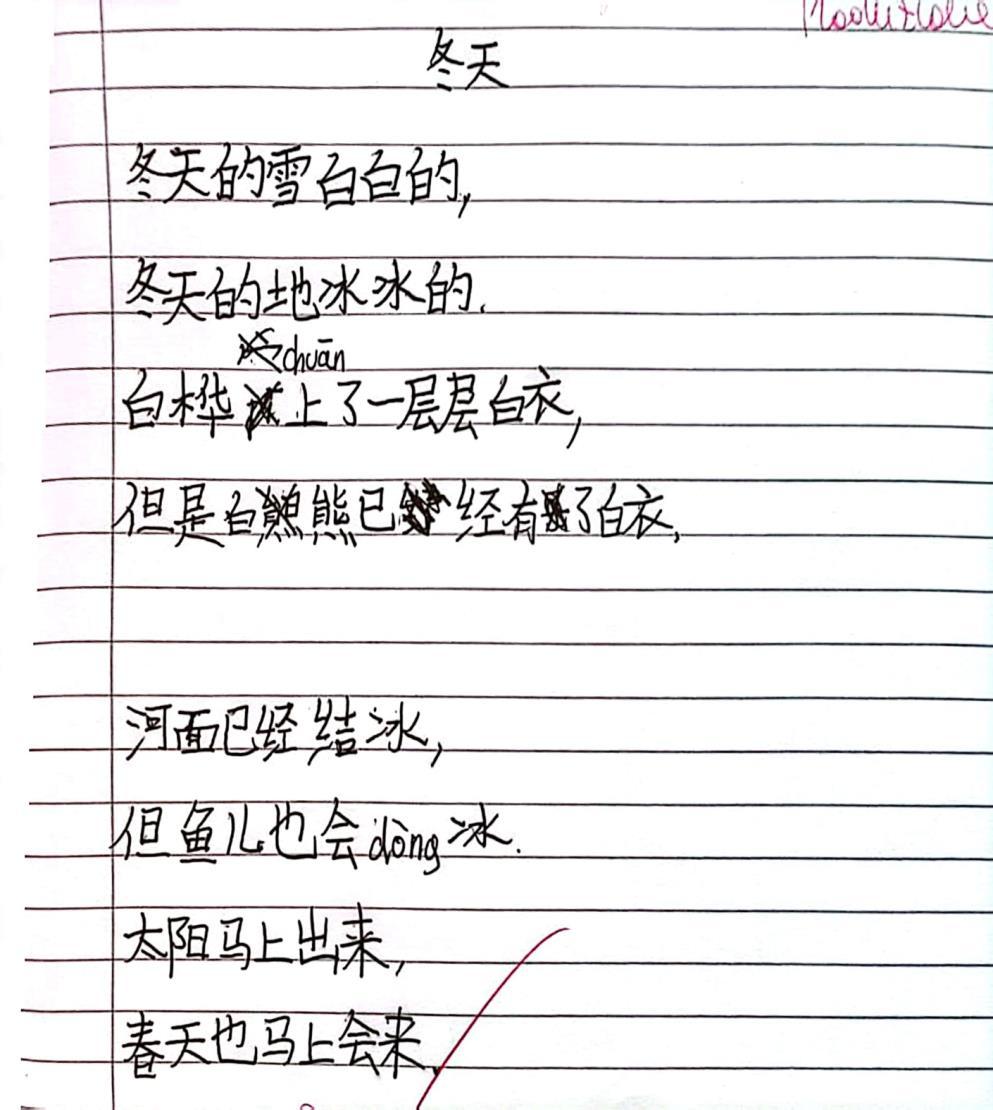 冬天
冬天的雪白白的,
冬天的地冰冰的.
chuān
白桦上了一层层白衣,
但是白熊已经有了白衣,
河面已经结冰,
但鱼儿也会dòng冰.
太阳马上出来,
春天也马上会来.